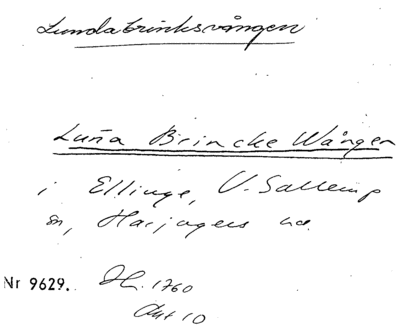 Lundabrinksvången
Luña Brincke Wången
i Ellinge, V. Sallerup
sn, Harjagers hd.
Nr 9629. 1760
Akt 10